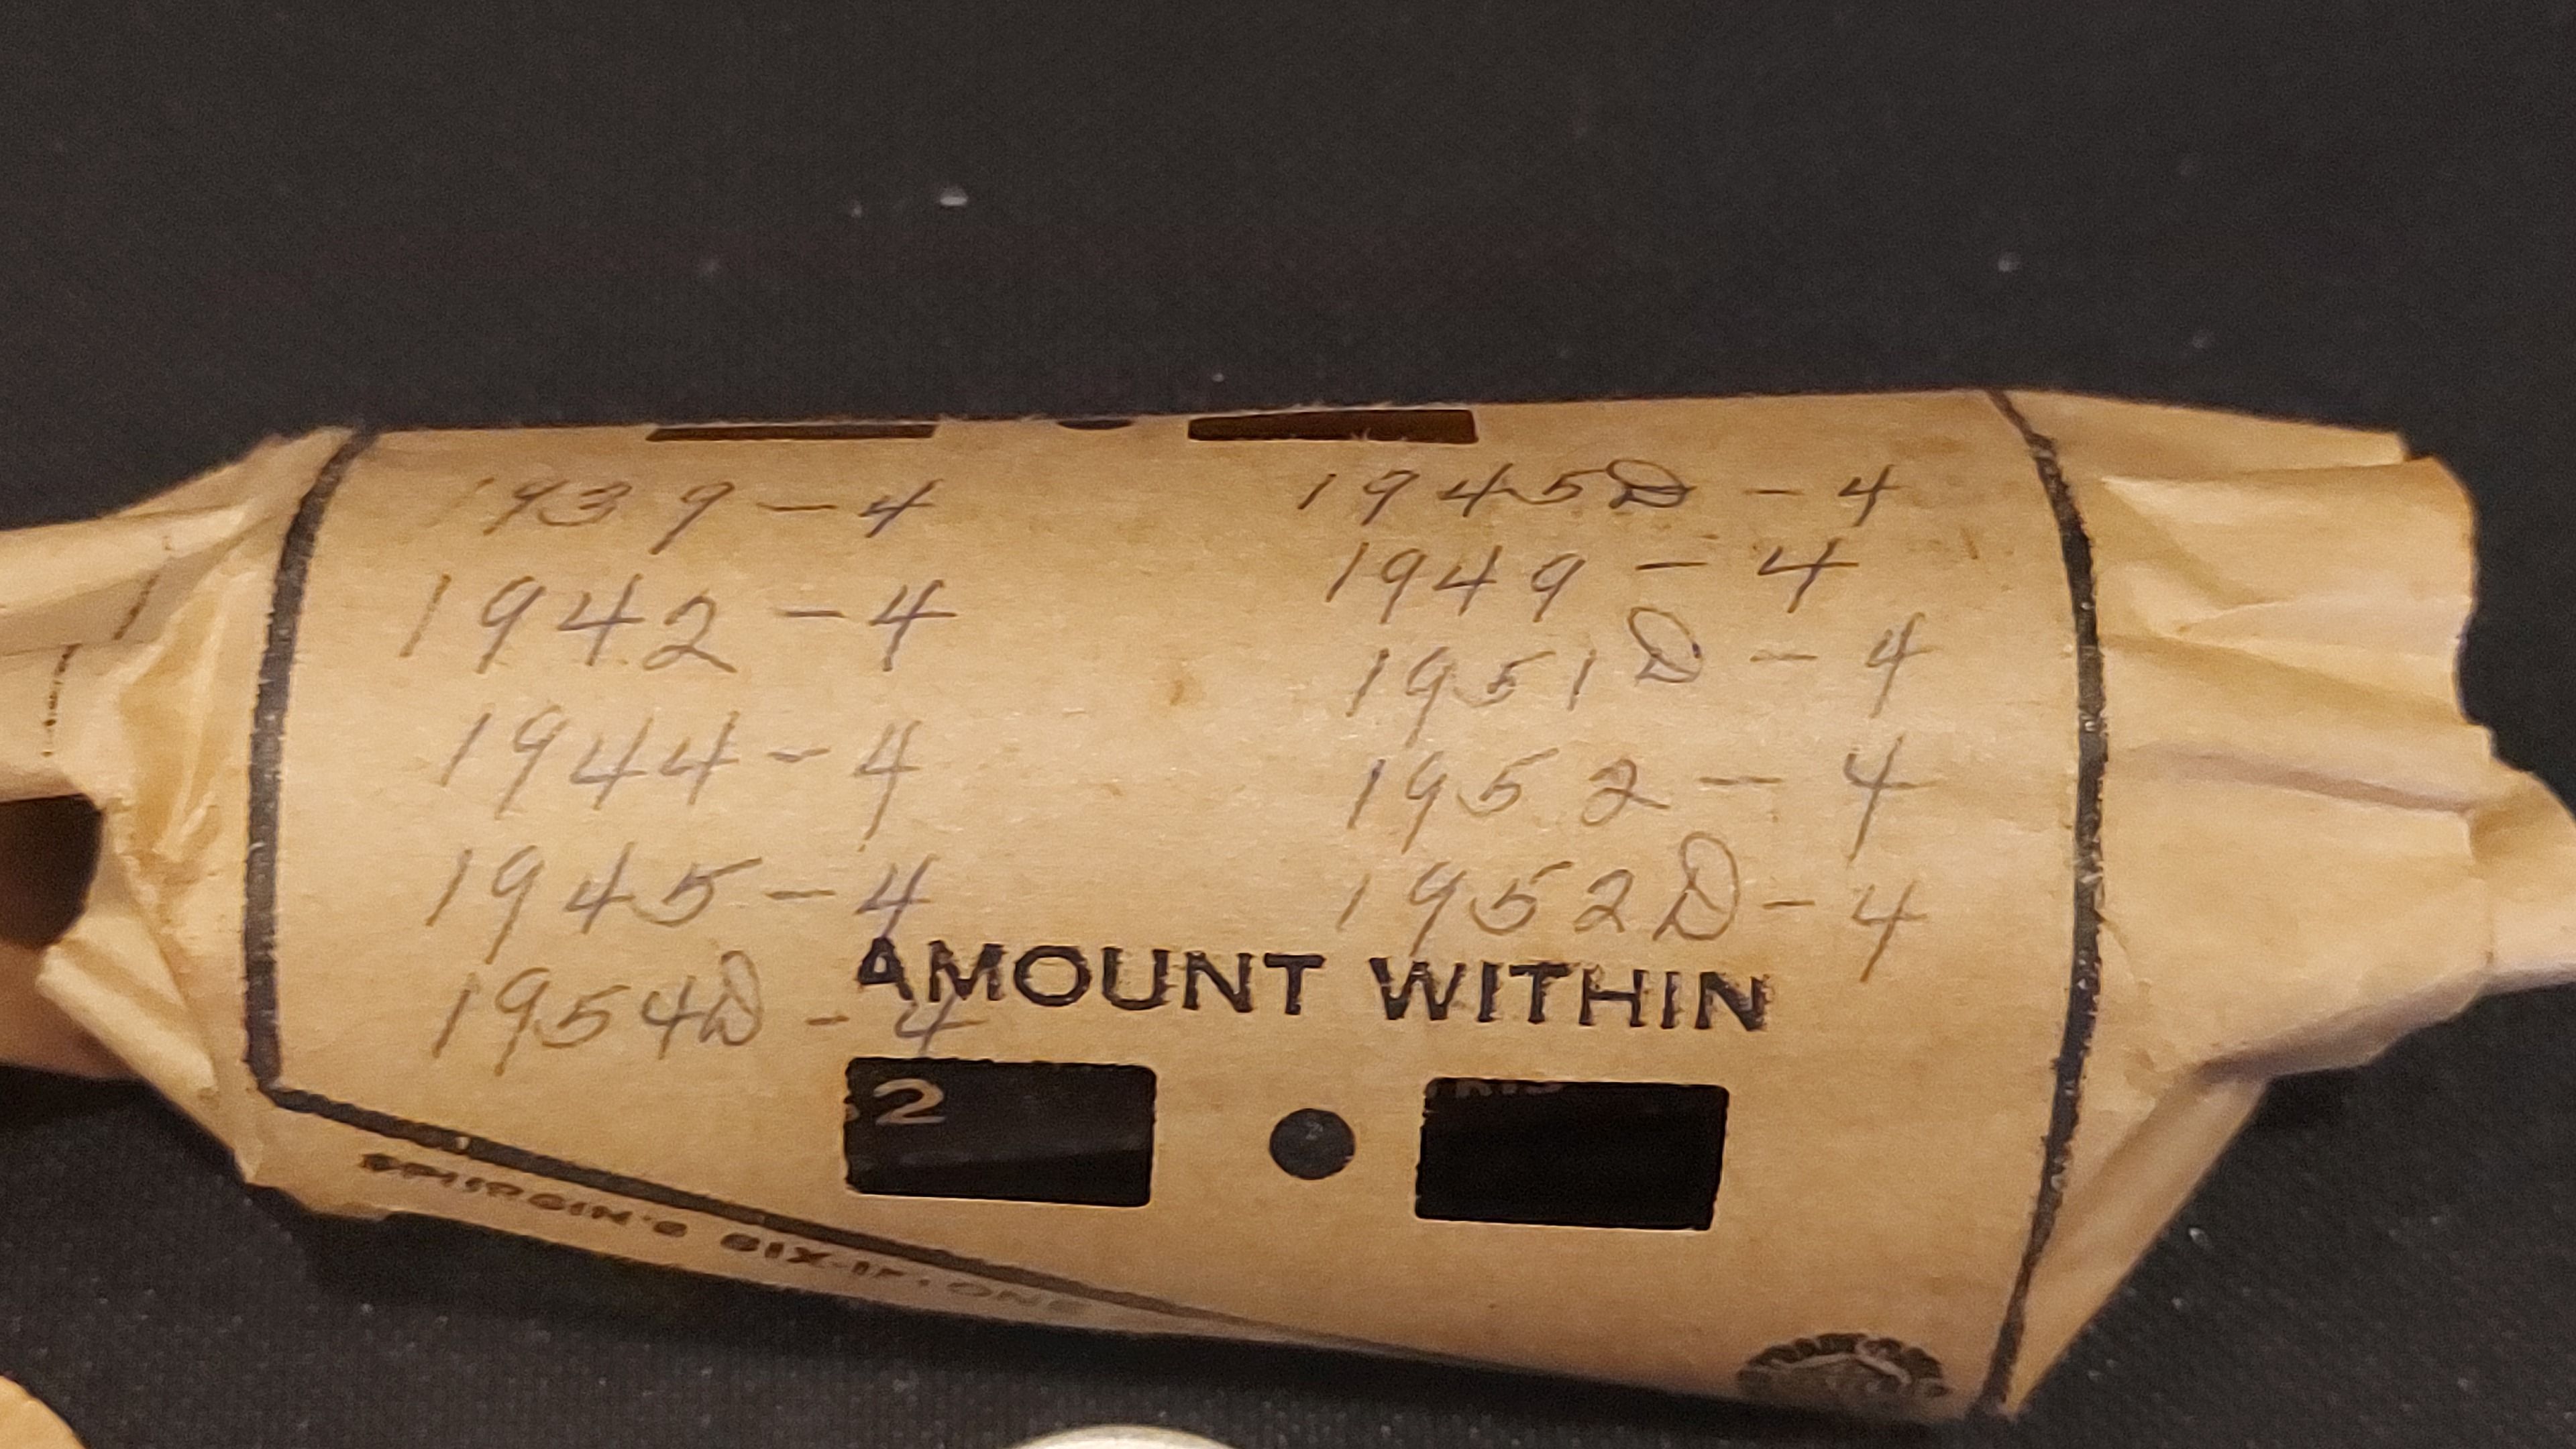 1939 - 4
1942 - 4
1944 - 4
1945 - 4
1954D - 4
1945D - 4
1949 - 4
1951D - 4
1952 - 4
1952D - 4
AMOUNT WITHIN
2
SIX-IN-ONE